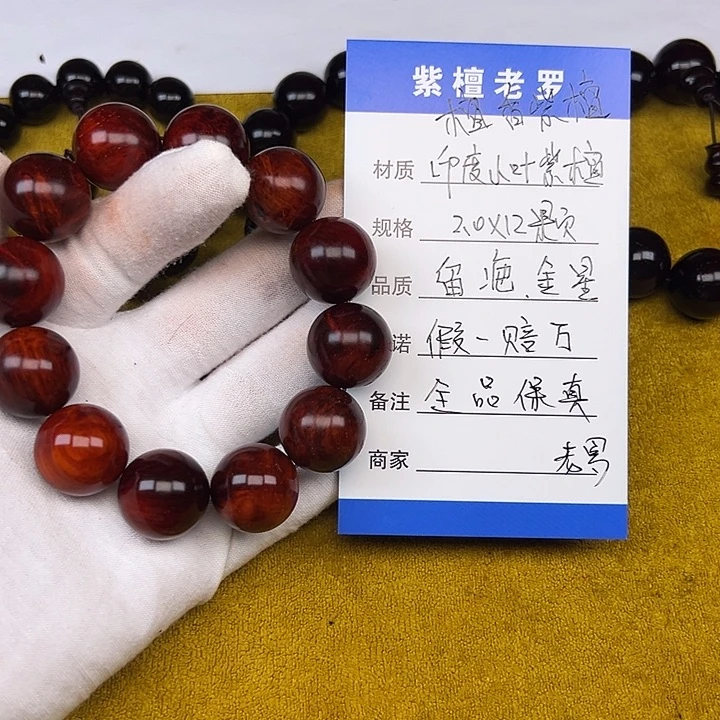 紫檀老罗
檀香紫檀
材质 印度小叶紫檀
规格 2.0X12颗
品质 留疤.金星
诺 假一赔万
备注 全品保真
商家 老罗